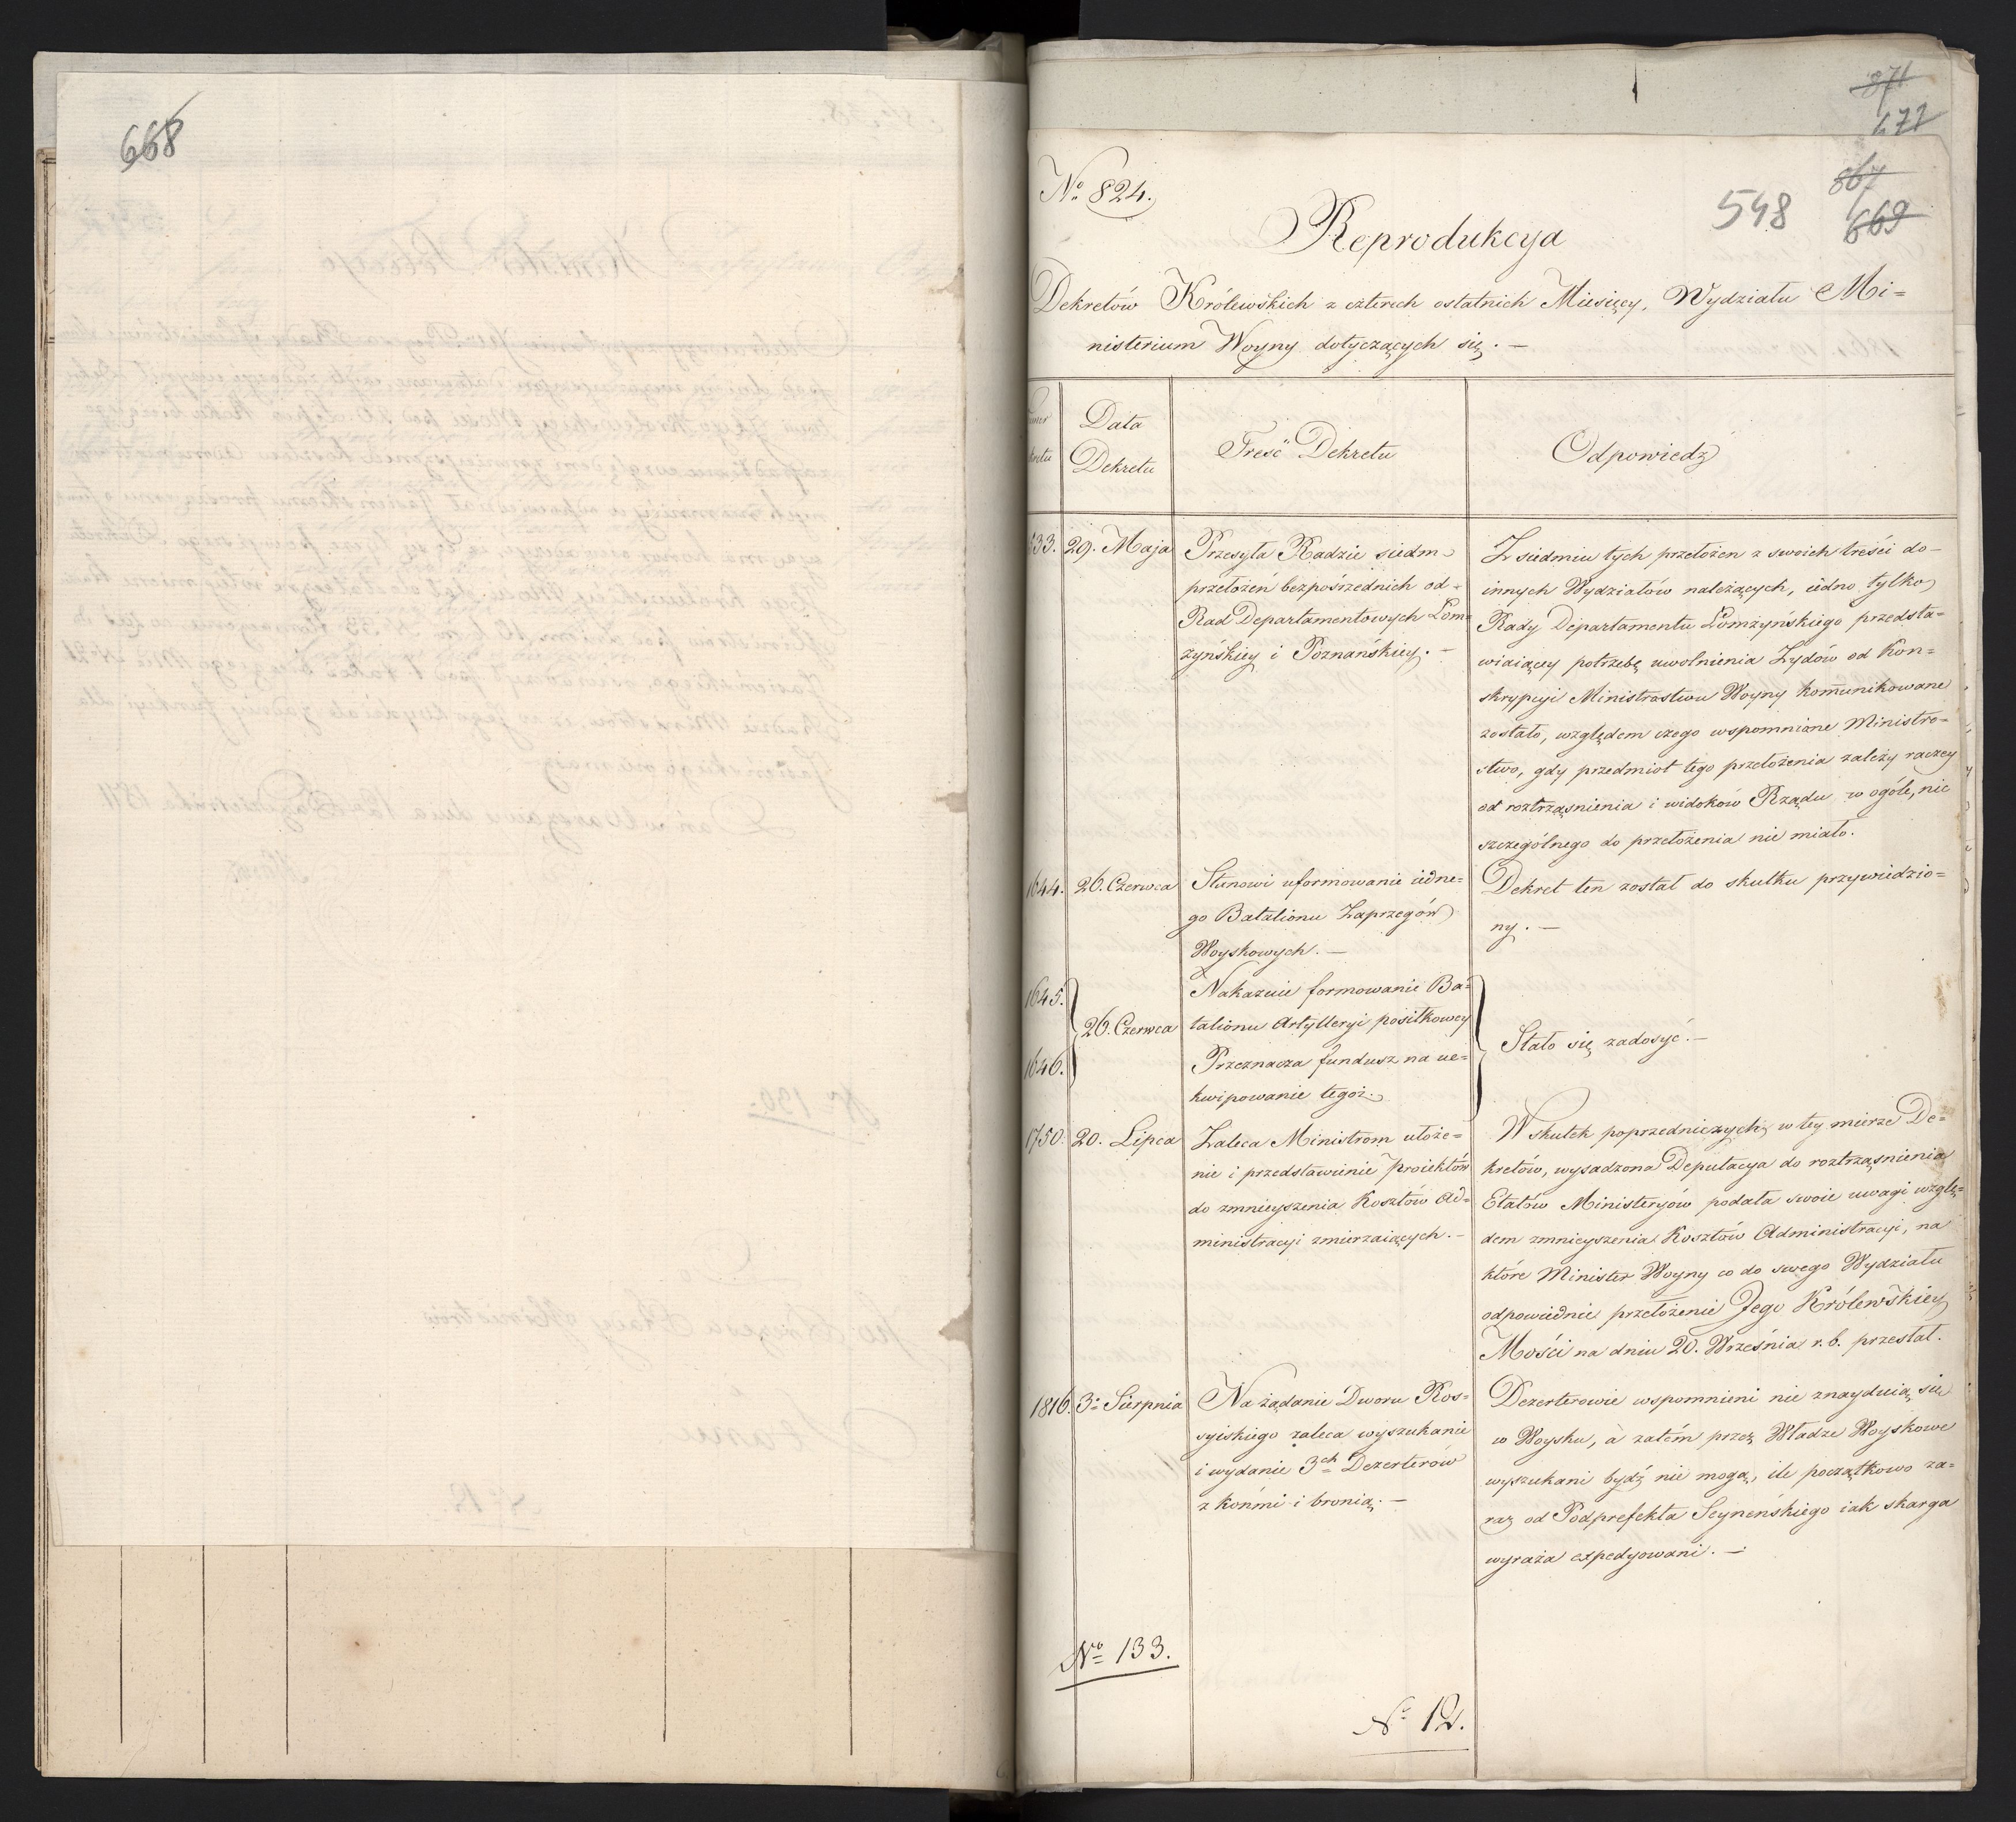 668
871
671
867
669
548
No 824.
Reprodukcya
Dekretów Królewskich z czterech ostatnich Miesięcy, Wydziału Mi=
nisterium Woyny dotyczących się. —
Data
Dekretu
Treść Dekretu
Odpowiedź
533. 29. Maja
Przesyła Radzie siedm
przełożeń bezpośrzednich od=
Rad Departamentowych Łom=
żyńskiey i Poznańskiey. —
Z siedmiu tych przełożeń z swoich treści do—
innych Wydziałów należących, iedno tylko
Rady Departamentu Łomżyńskiego przedsta=
wiaiącey potrzebę uwolnienia Żydów od Kon=
skrypcyi Ministrostwu Woyny kom̄unikowane
zostało, względem czego wspomnione Ministro=
stwo, gdy przedmiot tego przełożenia zależy raczey
od roztrząśnienia i widoków Rządu w ogóle, nic
szczególnego do przełożenia nie miało.
1644. 26. Czerwca
Stanowi uformowanie iedne=
go Batalionu Zaprzęgów
Woyskowych. —
Dekret ten został do skutku przywiedzio=
ny. —
1645.
1646.
26. Czerwca
Nakazuie formowanie Ba=
talionu Artylleryi posiłkowey
Przeznacza fundusz na ue=
kwipowanie tegoż.
Stało się zadosyć. —
1750. 20. Lipca
Zaleca Ministrom ułoże=
nie i przedstawienie proiektów
do zmnieyszenia Kosztów Ad=
ministracyi zmierzaiących. —
W skutek poprzedniczych w tey mierze De=
kretów, wysadzona Deputacya do roztrząśnienia
Etatów Ministeryów podała swoie uwagi wzglę=
dem zmnieyszenia Kosztów Administracyi, na
które Minister Woyny co do swego Wydziału
odpowiednie przełożenie Jego Królewskiey
Mości na dniu 20. Września r. b. przesłał.
1816. 3. Sierpnia
Na żądanie Dworu Ros=
syiskiego zaleca wyszukanie
i wydanie 3ch Dezerterów
z końmi i bronią. —
Dezerterowie wspomnieni nie znayduią się
w Woysku, a zatém przez Władze Woyskowe
wyszukani bydź nie mogą, ile początkowo za=
raz od Podprefekta Seyneńskiego iak skarga
wyraża expedyowani. —
No 133.
No 12.